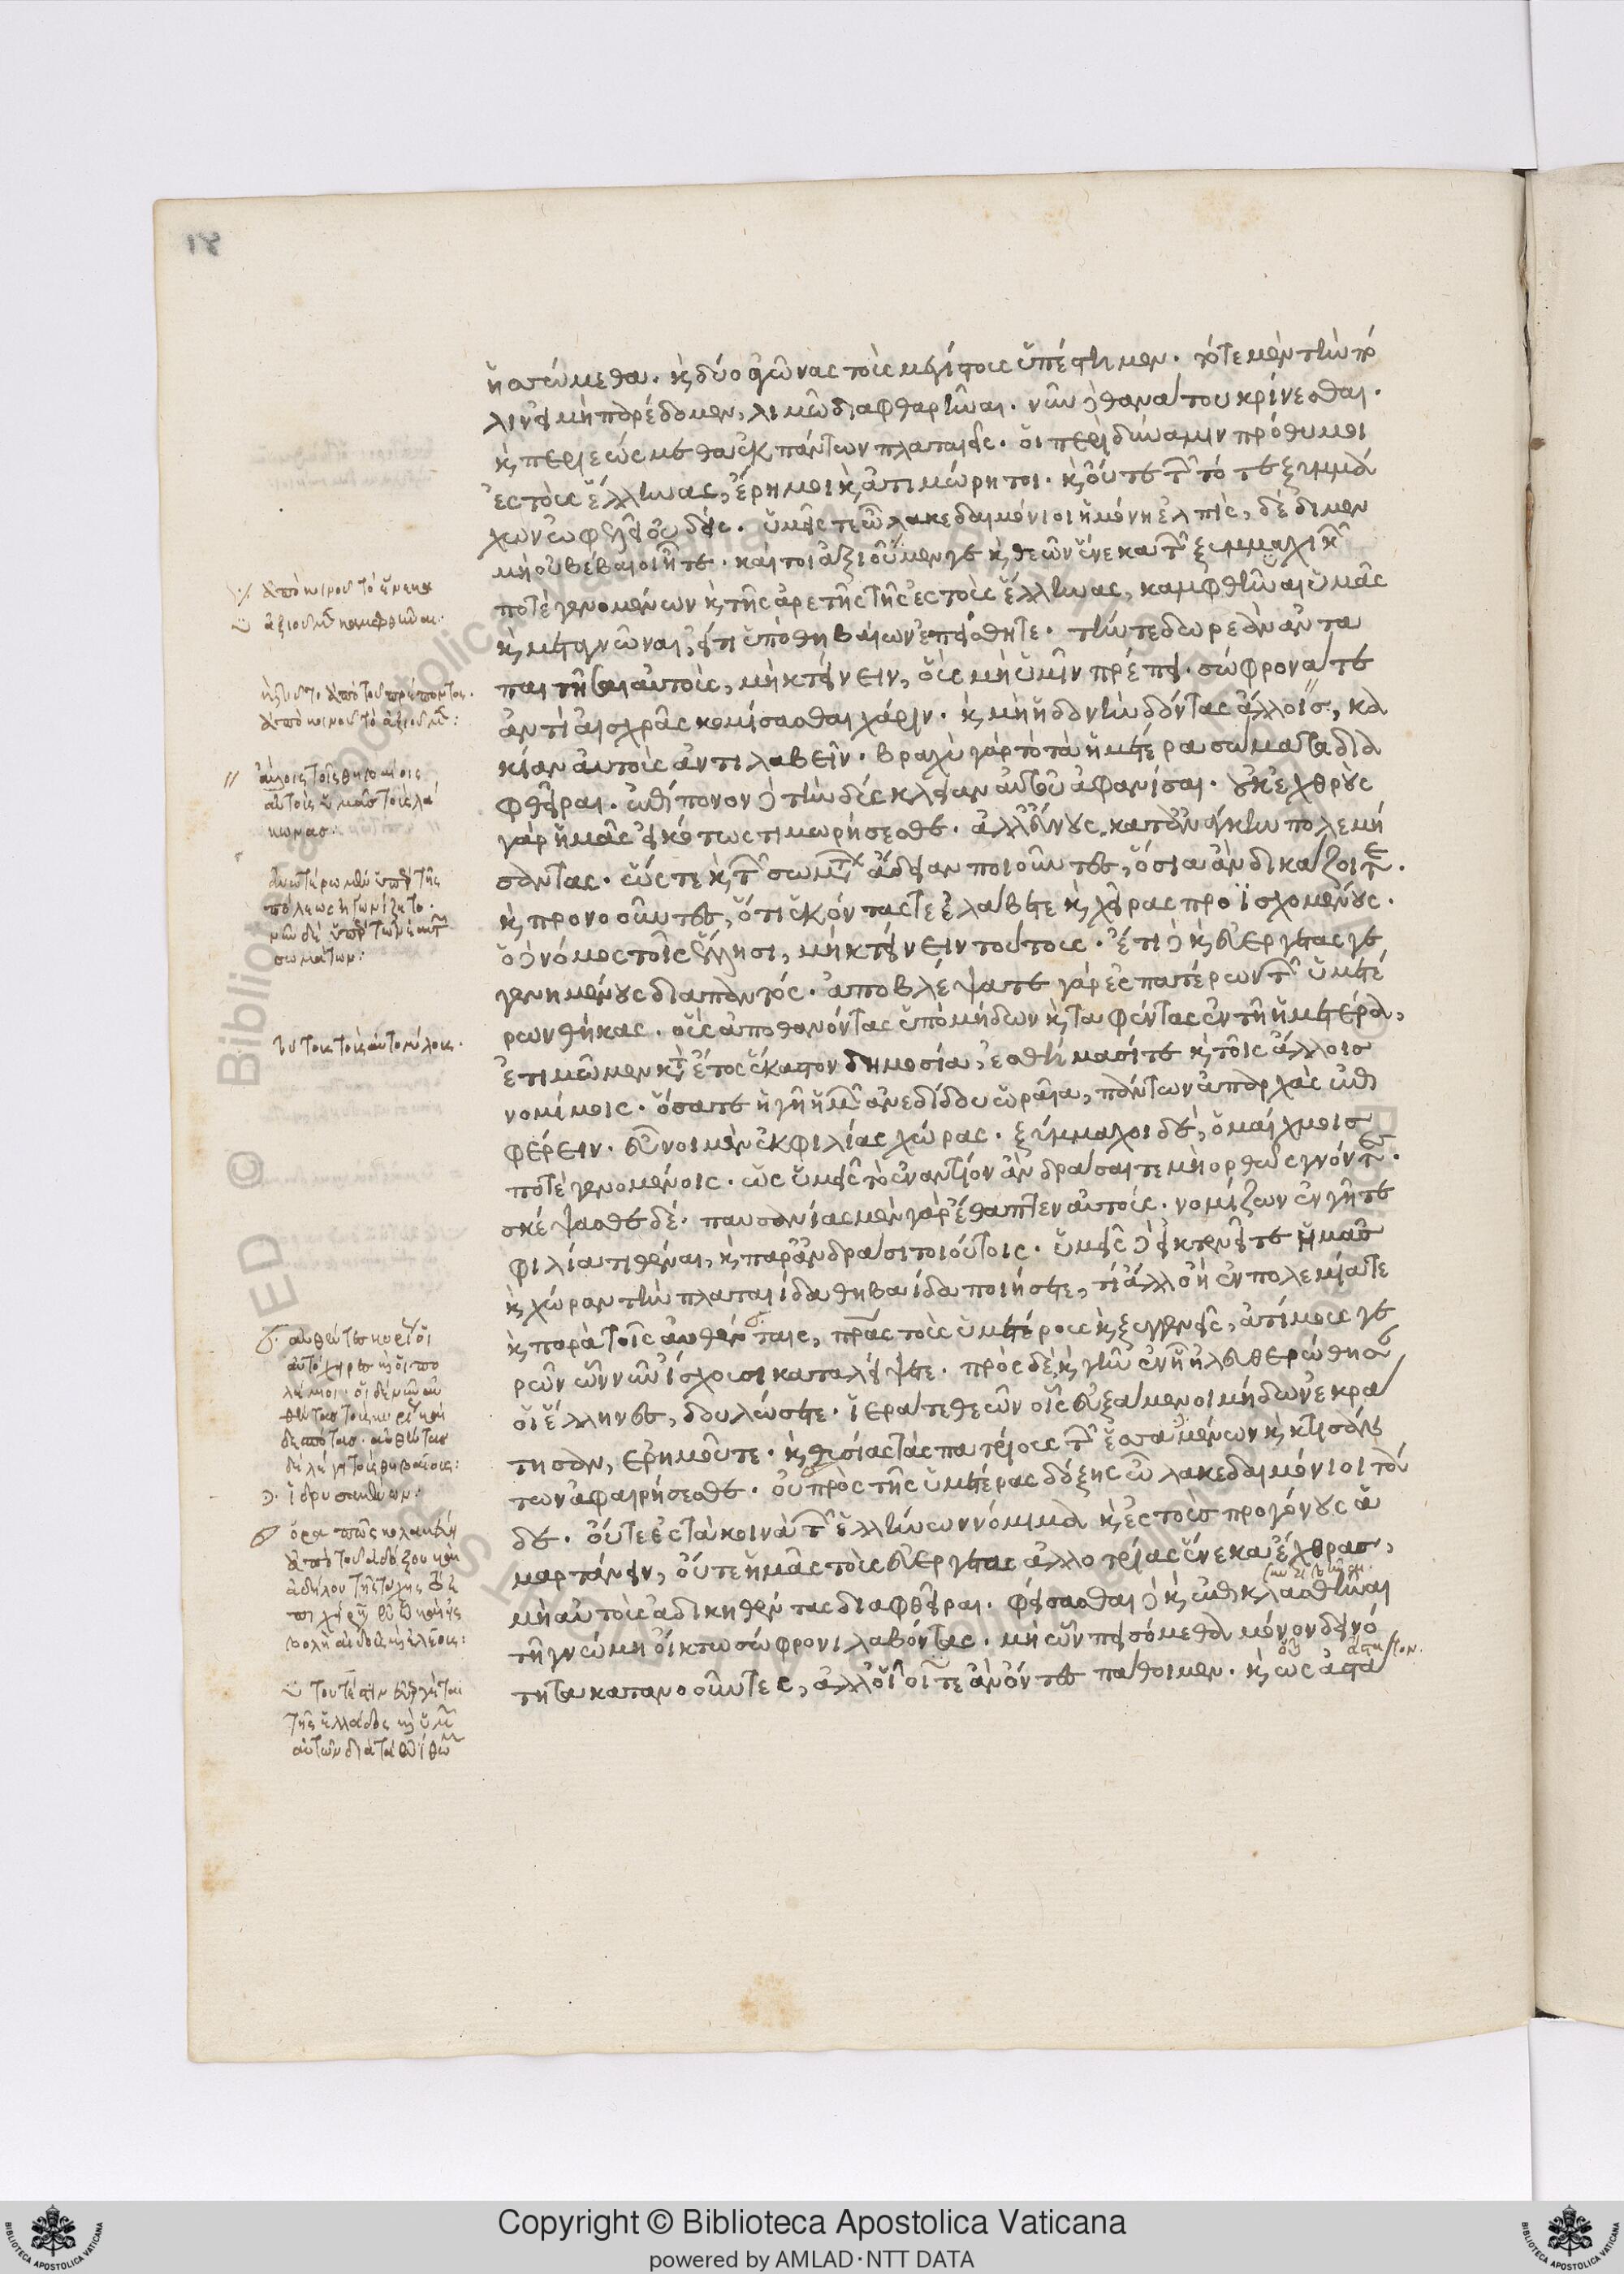 ἡσσώμεθα. καὶ δύο ἀγῶνας τοὺς μεγίστους ὑπέστημεν. τότε μὲν τὴν πό
λιν εἰ μὴ παρέδομεν, λιμῶ διαφθαρῆναι. νῦν δὲ θανάτου κρίνεσθαι.
καὶ περιεώσμεθα ἐκ πάντων πλαταιεῖς. οἱ περὶ δύναμιν πρόθυμοι
ἐς τοὺς ἕλληνας, ἔρημοι καὶ ἀτιμώρητοι. καὶ οὔτε τῶν τότε ξυμμά
χων ὠφελεῖ οὐδείς. ὑμεῖς τε ὦ λακεδαιμόνιοι ἡ μόνη ἐλπὶς, δέδιμεν
μὴ οὐ βέβαιοι ἦτε. καίτοι ἀξιοῦμεν γε καὶ θεῶν ἕνεκα τῶν ξυμμαχικῶν
ποτὲ γενομένων καὶ τῆς ἀρετῆς τῆς ἐς τοὺς ἕλληνας, καμφθῆναι ὑμᾶς
καὶ μεταγνῶναι, εἴ τι ὑπὸ θηβαίων ἐπείσθητε. τήν τε δωρεὰν ἀντα
παιτῆσαι αὐτοὺς, μὴ κτείνειν, οὓς μὴ ὑμῖν πρέπει. σώφρονά τε
ἀντὶ αἰσχρᾶς κομίσασθαι χάριν. καὶ μὴ ἡδονὴν δόντας ἄλλοις, κα
κίαν αὐτοὺς ἀντιλαβεῖν. βραχὺ γὰρ τὸ τὰ ἡμέτερα σώματα δια
φθεῖραι. ἐπίπονον δὲ τὴν δύσκλειαν αὐτοῦ ἀφανίσαι. οὐκ ἐχθροὺς
γὰρ ἡμᾶς εἰκότως τιμωρήσεσθε. ἀλλ' εὔνους, κατ' ἀνάγκην πολεμή
σαντας. ὥστε καὶ τῶν σωμάτων ἄδειαν ποιοῦντες, ὅσια ἂν δικάζοιτε.
καὶ προνοοῦντες, ὅτι ἑκόντας τε ἐλάβετε καὶ χεῖρας προϊσχομένους.
ὁ δὲ νόμος τοῖς ἕλλησι, μὴ κτείνειν τούτους. ἔτι δὲ καὶ εὐεργέτας γε
γενημένους διαπαντός. ἀποβλέψατε γὰρ ἐς πατέρων τῶν ὑμετέ
ρων θήκας. οὓς ἀποθανόντας ὑπὸ μήδων καὶ ταφέντας ἐν τῇ ἡμετέρα,
ἐτιμῶμεν κατὰ ἔτος ἕκαστον δημοσία, ἐσθήμασί τε καὶ τοῖς ἄλλοις
νομίμοις. ὅσα τε ἡ γῆ ἡμῶν ἀνεδίδου ὡραῖα, πάντων ἀπαρχὰς ἐπι
φέρειν. εὖνοι μὲν ἐκ φιλίας χώρας. ξύμμαχοι δὲ, ὁμαίχμοις
ποτὲ γενομένοις. ὡς ὑμεῖς τὸ ἐναντίον ἂν δράσαιτε μὴ ὀρθῶς γνόντες.
σκέψασθε δέ. παυσανίας μὲν γὰρ ἔθαπτεν αὐτούς. νομίζων ἐν γῆ τε
φιλία τιθέναι, καὶ παρ' ἀνδράσι τοιούτοις. ὑμεῖς δὲ εἰ κτενεῖτε ἡμᾶς
καὶ χώραν τὴν πλαταιίδα θηβαίδα ποιήσετε, τί ἄλλο ἢ ἐν πολεμία τε
καὶ παρὰ τοῖς αὐθένταις, πατέρας τοὺς ὑμετέρους καὶ ξυγγενεῖς, ἀτίμους γε
ρῶν ὧν νῦν ἴσχουσι καταλείψετε. πρὸς δὲ, καὶ γῆν ἐν ᾗ ἠλευθερώθησαν
οἱ ἕλληνες, δουλώσετε. ἱερά τε θεῶν οἷς εὐξάμενοι μήδων ἐκρά
τησαν, ἐρημοῦτε. καὶ θυσίας τὰς πατρίους τῶν ἑσσαμένων καὶ κτισάν
των ἀφαιρήσεσθε. οὐ πρὸς τῆς ὑμετέρας δόξης ὦ λακεδαιμόνιοι τά
δε. οὔτε ἐς τὰ κοινὰ τῶν ἑλλήνων νόμιμα καὶ ἐς τοὺς προγόνους ἁ
μαρτάνειν, οὔτε ἡμᾶς τοὺς εὐεργέτας ἀλλοτρίας ἕνεκα ἔχθρας,
μὴ αὐτοὺς ἀδικηθέντας διαφθεῖραι. φείσασθαι δὲ καὶ ἐπικλασθῆναι
τῇ γνώμῃ οἴκτω σώφρονι λαβόντας. μὴ ὧν πεισόμεθα μόνον δεινό
τητα κατανοοῦντες, ἀλλ' οἷοί τε ἂν ὄντες πάθοιμεν. καὶ ὡς ἀστά
ἀπὸ κοινοῦ τὸ ἕνεκα
ἀξιοῦμεν καμφθῆναι.
ἀπὸ τοῦ πρέποντος.
ἀπὸ κοινοῦ τὸ ἀξιοῦμεν:
ἄλλοις τοῖς θηβαίοις
αὐτοὺς ὑμᾶς τοὺς λά
κωνας:
ἀνωτέρω μὲν ὑπὲρ τῆς
πόλεως ἠγωνίζετο.
νῦν δὲ ὑπὲρ τῶν
σωμάτων:
τούτους τοὺς αὐτομόλους.
αὐθένται κυρίως οἱ
αὐτόχειρες καὶ οἱ πο
λέμιοι. οἱ δὲ νῦν αὐ
θέντας τοὺς κυρίους καὶ
δεσπότας. αὐθέντας
δὲ λέγει τοὺς θηβαίους:
ἱδρυσαμένων:
ὅρα πῶς
ἀπὸ τοῦ ἀδόξου καὶ
ἀδήλου τῆς τύχης
τουτέστιν εὐεργέται
τῆς ἑλλάδος καὶ ὑμῶν
αὐτῶν διὰ τὰ